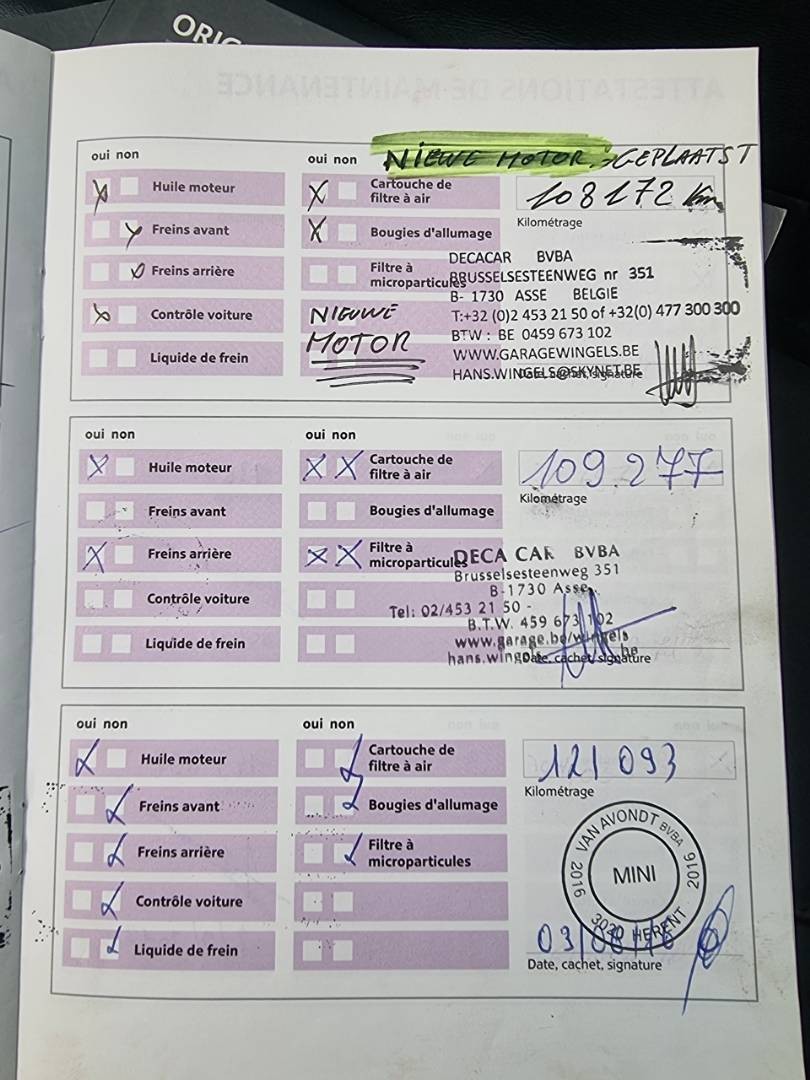 ORIG
oui non
oui non
NIEUWE MOTOR → GEPLAATST
Huile moteur
Cartouche de
filtre à air
108172 Km
Kilométrage
Freins avant
Bougies d'allumage
Freins arrière
Filtre à
microparticules
DECACAR BVBA
BRUSSELSESTEENWEG nr 351
B- 1730 ASSE BELGIE
T:+32 (0)2 453 21 50 of +32(0) 477 300 300
BTW : BE 0459 673 102
WWW.GARAGEWINGELS.BE
HANS.WINGELS@SKYNET.BE
Date, cachet, signature
Contrôle voiture
NIEUWE
MOTOR
Liquide de frein
oui non
oui non
Huile moteur
Cartouche de
filtre à air
109.277
Kilométrage
Freins avant
Bougies d'allumage
Freins arrière
Filtre à
microparticules
DECA CAR BVBA
Brusselsesteenweg 351
B-1730 Asse
Tel: 02/453 21 50 -
B.T.W. 459 673 102
www.garage.be/wingels
Date, cachet, signature
Contrôle voiture
Liquide de frein
oui non
oui non
Huile moteur
Cartouche de
filtre à air
121 093
Kilométrage
Freins avant
Bougies d'allumage
Freins arrière
Filtre à
microparticules
VAN AVONDT BVBA
2016 MINI 2016
3020 HERENT
Contrôle voiture
Liquide de frein
03/08/16
Date, cachet, signature